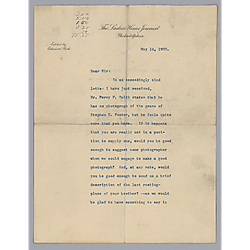 The Ladies' Home Journal
Philadelphia
Edited by
Edward Bok
May 14, 1900.
Dear Sir:
In an exceedingly kind
letter I have just received,
Mr. Percy F. Smith states that he
has no photograph of the grave of
Stephen C. Foster, but he feels quite
sure that you have. If it happens
that you are really not in a posi-
tion to supply one, would you be good
enough to suggest some photographer
whom we could engage to make a good
photograph? And, at any rate, would
you be good enough to send us a brief
description of the last resting-
place of your brother? --as we would
be glad to have something to say in